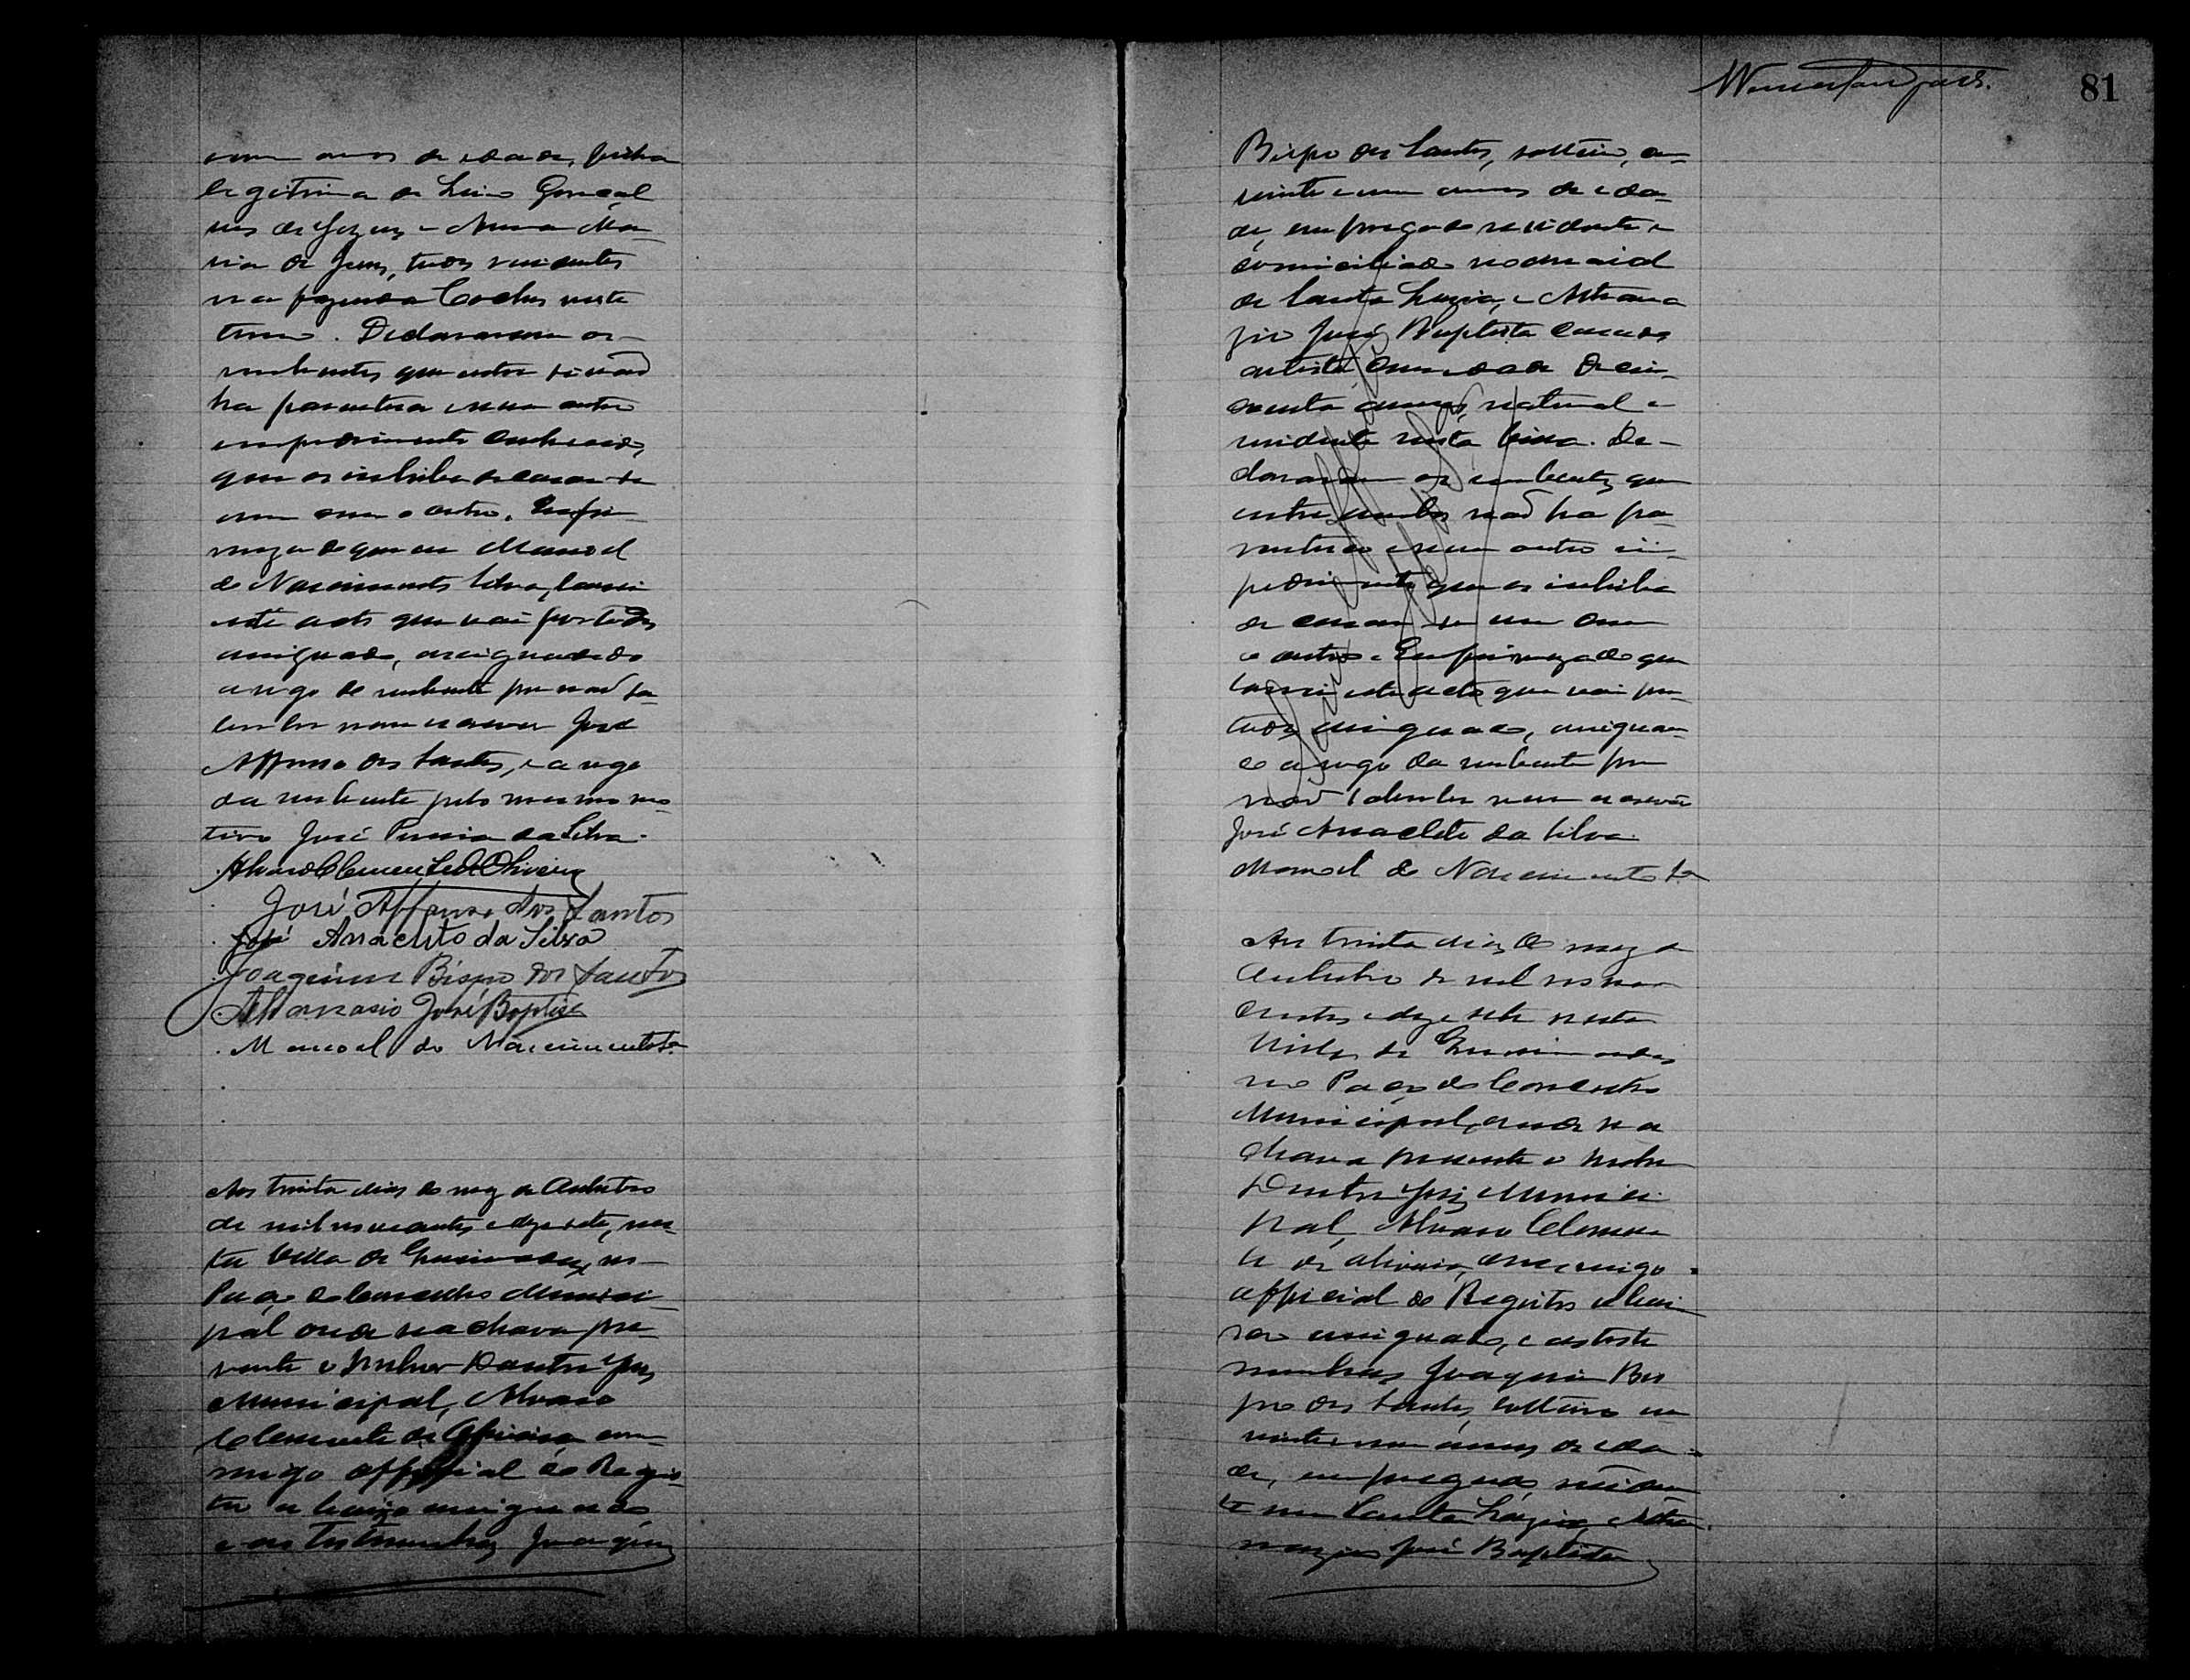 annos de idade, filha
legitima de Gonçal
ves de Jezus e Anna Ma-
ria de Jesus, todos residentes
na fazenda neste
termo. Declararam os
nubentes que entre si não
ha parentesco nem outro
impedimento conhecido,
que os inhiba de casar-se
um com o outro. Em fir-
meza do que eu Manoel
do Nascimento Silva, lavrei
este acto que vai por todos
assignado, assignando
a rogo do nubente por não sa-
ber ler nem escrever José
Affonso dos Santos, e a rogo
da nubente pelo mesmo mo-
tivo José Pereira da Silva.
Alvaro Clemente de Oliveira
José Affonso dos Santos
José Anacleto da Silva
Joaquim Bispo dos Santos
Athanasio José Baptista
Manoel do Nascimento Sa
Aos trinta dias do mez de Outubro
de mil novecentos e dezesete, nes-
ta Villa de no
Paço do Conselho Munici-
pal onde se achava pre-
sente o Senhor Doutor Juiz
Municipal, Alvaro
Clemente de Oliveira com-
migo official do Regis-
tro abaixo assignado
e as testemunhas Joaquim
81
Bispo dos Santos, solteiro, com
vinte e um annos de ida-
de, empregado residente e
domiciliado no arraial
de Santa Luzia, e Athana
zio José Baptista casado
artista, com idade de cin-
coenta annos, natural e
residente nesta Villa. De-
clararam os nubentes que
entre ambos não ha pa-
rentesco e nem outro im-
pedimento que os inhiba
de casar-se um com
o outro. Em firmeza do que
lavrei este acto que vai por
todos assignado, assignan-
do a rogo da nubente por
não saber ler nem escrever
José Anacleto da Silva.
Manoel do Nascimento Sa
Aos trinta dias do mez de
Outubro de mil nove
centos e dezesete nesta
Villa de
no Paço do Conselho
Municipal, onde se a
chava presente o Senhor
Doutor Juiz Munici-
pal, Alvaro Clemen
te de Oliveira, commigo
official do Registro abai
xo assignado, e as teste
munhas Joaquim Bis
po dos Santos, solteiro com
vinte e um annos de ida-
de, empregado residen
te em Santa Luzia, Atha-
nazio José Baptista